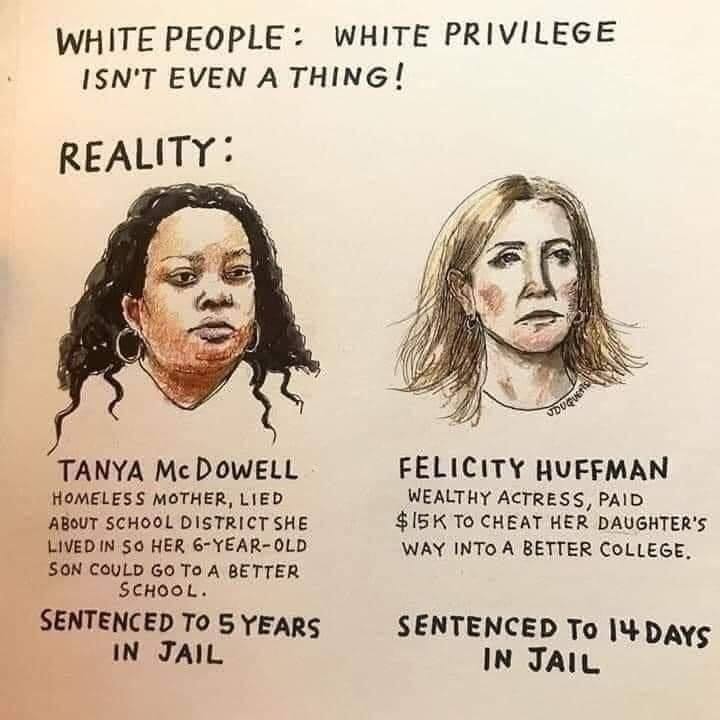 WHITE PEOPLE: WHITE PRIVILEGE
ISN'T EVEN A THING!
REALITY:
JDUQUETTE
TANYA McDOWELL
HOMELESS MOTHER, LIED
ABOUT SCHOOL DISTRICT SHE
LIVED IN SO HER 6-YEAR-OLD
SON COULD GO TO A BETTER
SCHOOL.
SENTENCED TO 5 YEARS
IN JAIL
FELICITY HUFFMAN
WEALTHY ACTRESS, PAID
$15K TO CHEAT HER DAUGHTER'S
WAY INTO A BETTER COLLEGE.
SENTENCED TO 14 DAYS
IN JAIL